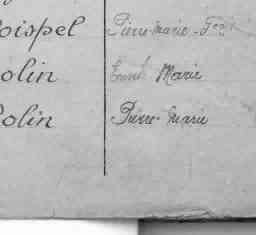 oispel Pierre-marie-
olin Marie
olin Pierre-Marie